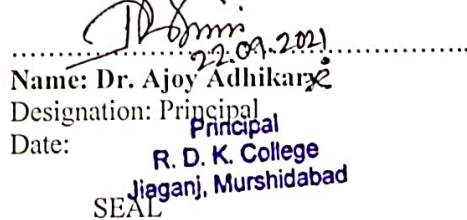 22.09.2021
Name: Dr. Ajoy Adhikary
Designation: Principal
Principal
Date:
R. D. K. College
Jiaganj, Murshidabad
SEAL